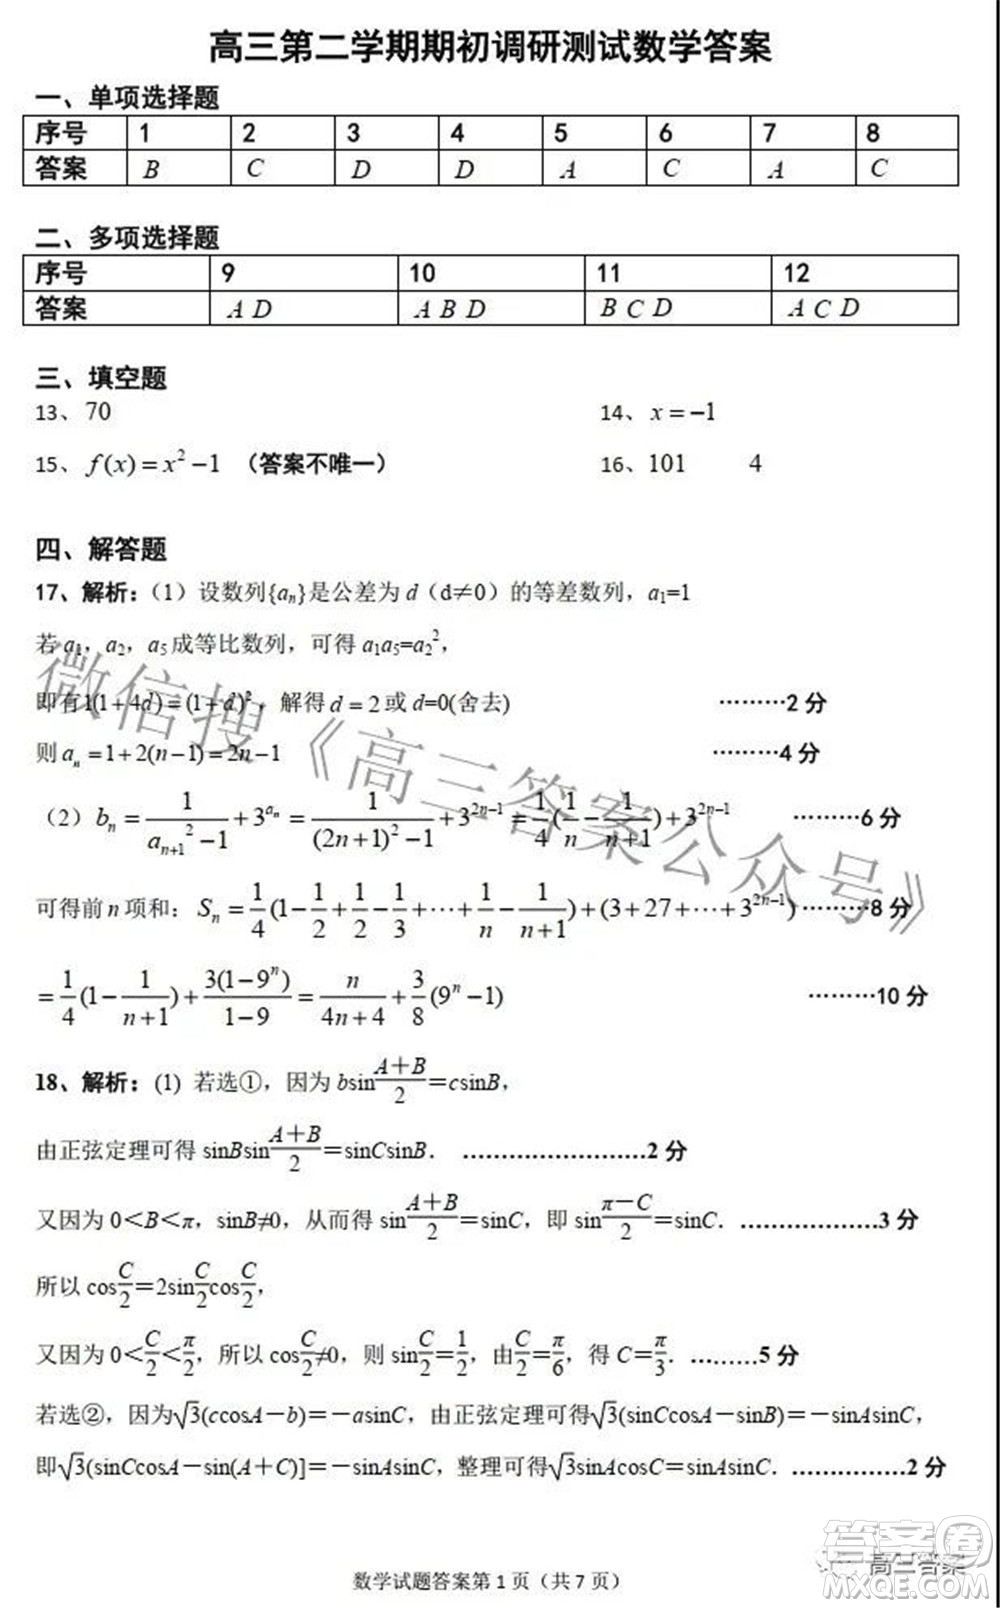 高三第二学期期初调研测试数学答案
一、单项选择题
序号 1 2 3 4 5 6 7 8
答案 B C D D A C A C
二、多项选择题
序号 9 10 11 12
答案 A D A B D B C D A C D
三、填空题
13、70 14、x=−1
15、f(x)=x²−1（答案不唯一） 16、101 4
四、解答题
17、解析：（1）设数列{aₙ}是公差为 d（d≠0）的等差数列，a₁=1
若 a₁，a₂，a₅成等比数列，可得 a₁a₅=a₂²，
即有1(1+4d)=(1+d)²，解得 d=2 或 d=0(舍去) ………2 分
则 aₙ=1+2(n−1)=2n−1 ………4 分
（2）bₙ=1/(aₙ₊₁²−1)+3^(aₙ)=1/((2n+1)²−1)+3^(2n−1)=1/4(1/n−1/(n+1))+3^(2n−1) ………6 分
可得前 n 项和：Sₙ=1/4(1−1/2+1/2−1/3+⋯+1/n−1/(n+1))+(3+27+⋯+3^(2n−1)) ………8 分
=1/4(1−1/(n+1))+3(1−9ⁿ)/(1−9)=n/(4n+4)+3/8(9ⁿ−1) ………10 分
18、解析：(1) 若选①，因为 bsin(A＋B)/2＝csinB，
由正弦定理可得 sinBsin(A＋B)/2＝sinCsinB． ……………………2 分
又因为 0＜B＜π，sinB≠0，从而得 sin(A＋B)/2＝sinC，即 sin(π－C)/2＝sinC．…………………3 分
所以 cosC/2＝2sinC/2cosC/2，
又因为 0＜C/2＜π/2，所以 cosC/2≠0，则 sinC/2＝1/2，由C/2＝π/6，得 C＝π/3．………5 分
若选②，因为√3(ccosA－b)＝－asinC，由正弦定理可得√3(sinCcosA－sinB)＝－sinAsinC，
即√3(sinCcosA－sin(A＋C)]＝－sinAsinC，整理可得√3sinAcosC＝sinAsinC．……………2 分
数学试题答案第 1 页（共 7 页）
微信搜《高三答案公众号》
高三答案
答案卷
MXQE.COM